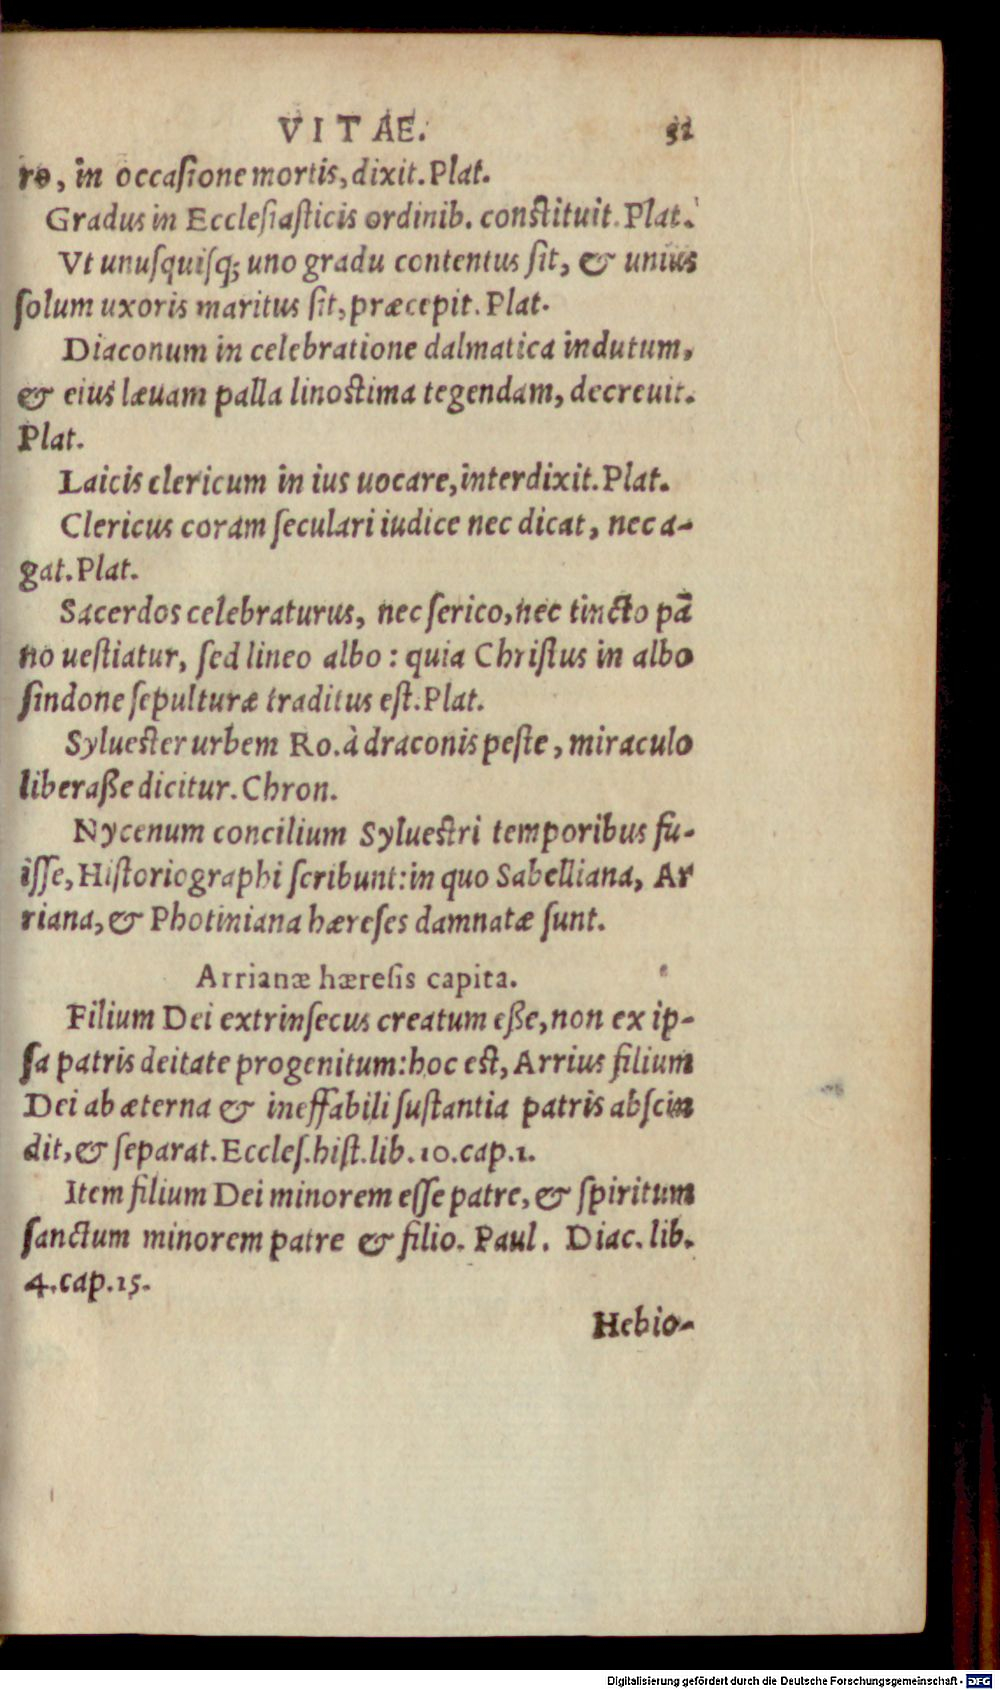 VITAE. 32
ro, in occasione mortis, dixit. Plat.
Gradus in Ecclesiasticis ordinib. constituit. Plat.
Vt unusquisq; uno gradu contentus sit, & unius
solum uxoris maritus sit, præcepit. Plat.
Diaconum in celebratione dalmatica indutum,
& eius læuam palla linostima tegendam, decreuit.
Plat.
Laicis clericum in ius uocare, interdixit. Plat.
Clericus coram seculari iudice nec dicat, nec a-
gat. Plat.
Sacerdos celebraturus, nec serico, nec tincto pā
no uestiatur, sed lineo albo: quia Christus in albo
sindone sepulturæ traditus est. Plat.
Syluester urbem Ro. à draconis peste, miraculo
liberaße dicitur. Chron.
Nycenum concilium Syluestri temporibus fu-
isse, Historiographi scribunt: in quo Sabelliana, Ar
riana, & Photiniana hæreses damnatæ sunt.
Arrianæ hæresis capita.
Filium Dei extrinsecus creatum eße, non ex ip-
sa patris deitate progenitum: hoc est, Arrius filium
Dei ab æterna & ineffabili sustantia patris abscin
dit, & separat. Eccles. hist. lib. 10. cap. 1.
Item filium Dei minorem esse patre, & spiritum
sanctum minorem patre & filio. Paul. Diac. lib.
4. cap. 15.
Hebio-
Digitalisierung gefördert durch die Deutsche Forschungsgemeinschaft - DFG